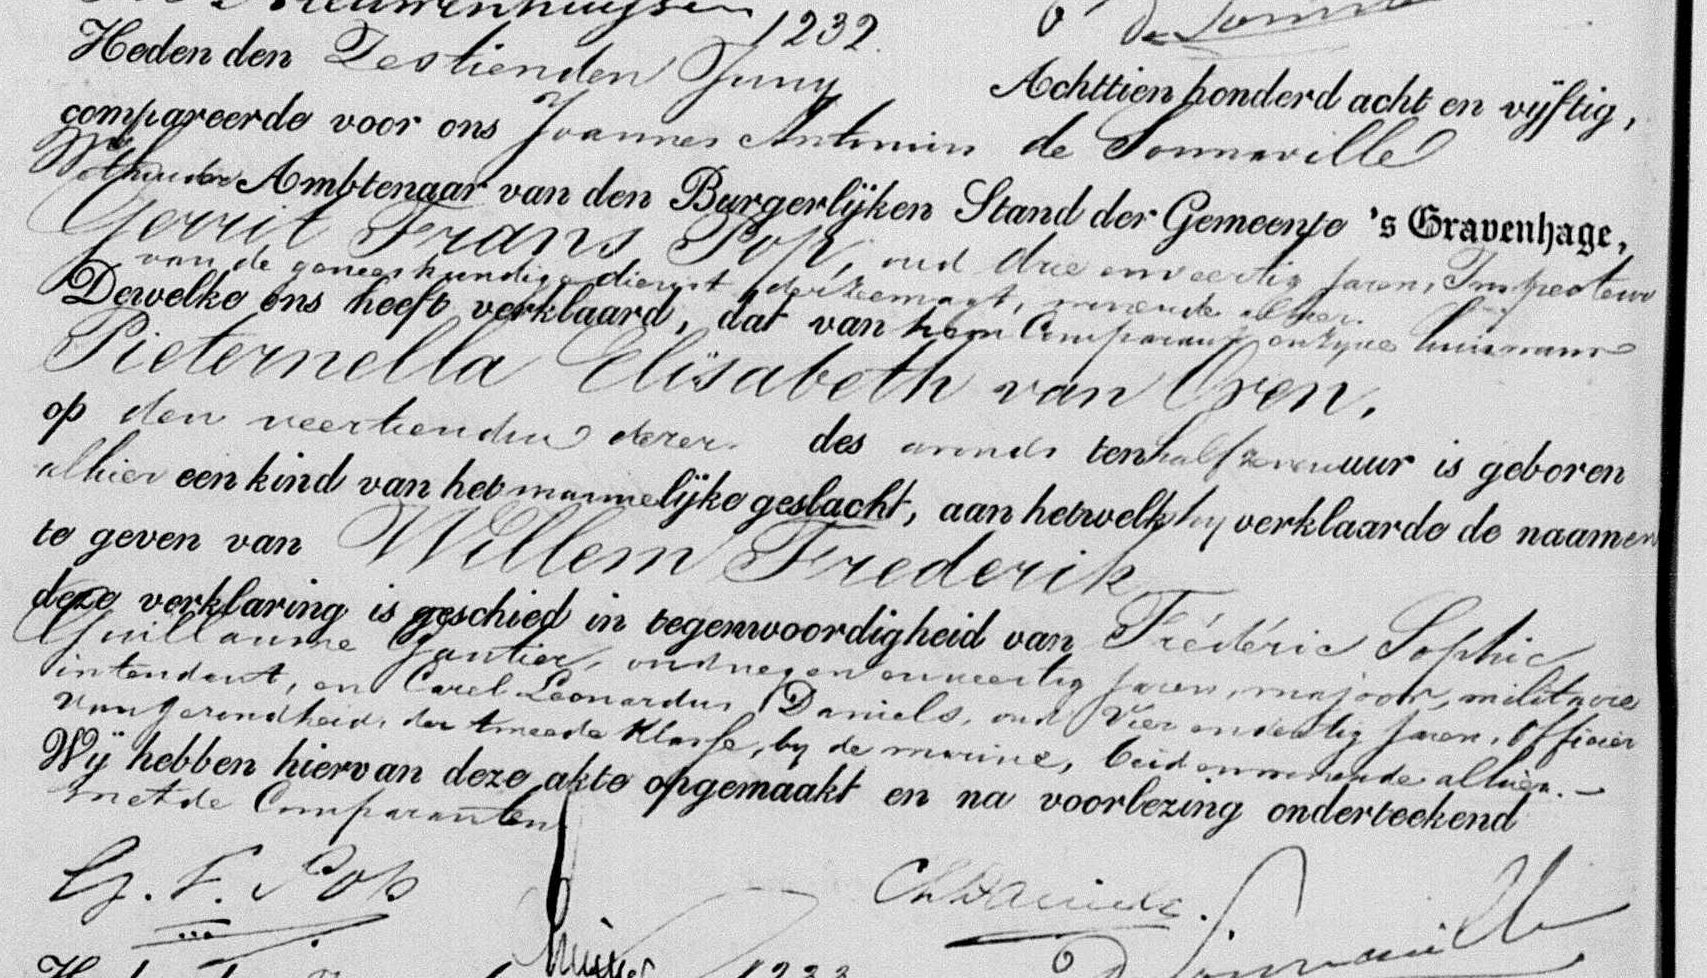 Nieuwenhuysen
1232.
Heden den Zestienden Juny Achttien honderd acht en vijftig,
compareerde voor ons Joannes Antonius de Sonnaville
Wethouder Ambtenaar van den Burgerlijken Stand der Gemeente 's Gravenhage,
Gerrit Frans Pop, oud drie en veertig jaren, Inspecteur
van de geneeskundige dienst der Zeemagt, wonende alhier.
Dewelke ons heeft verklaard, dat van hem Comparant en zyne huisvrouw
Pieternella Elisabeth van Oven,
op den veertienden dezer des avonds ten half zeven uur is geboren
alhier een kind van het mannelijke geslacht, aan hetwelk hy verklaarde de naamen
te geven van Willem Frederik
deze verklaring is geschied in tegenwoordigheid van Fréderic Sophie
Guillaume Gautier, oud negen en veertig jaren, majoor, militaire
intendant, en Carel Leonardus Daniels, oud vier en dertig jaren, officier
van gezondheid, der tweede Klasse, by de marine, beiden wonende alhier. –
Wij hebben hiervan deze akte opgemaakt en na voorlezing onderteekend
met de Comparanten
G. F. Pop
Daniels.
de Sonnaville
1233